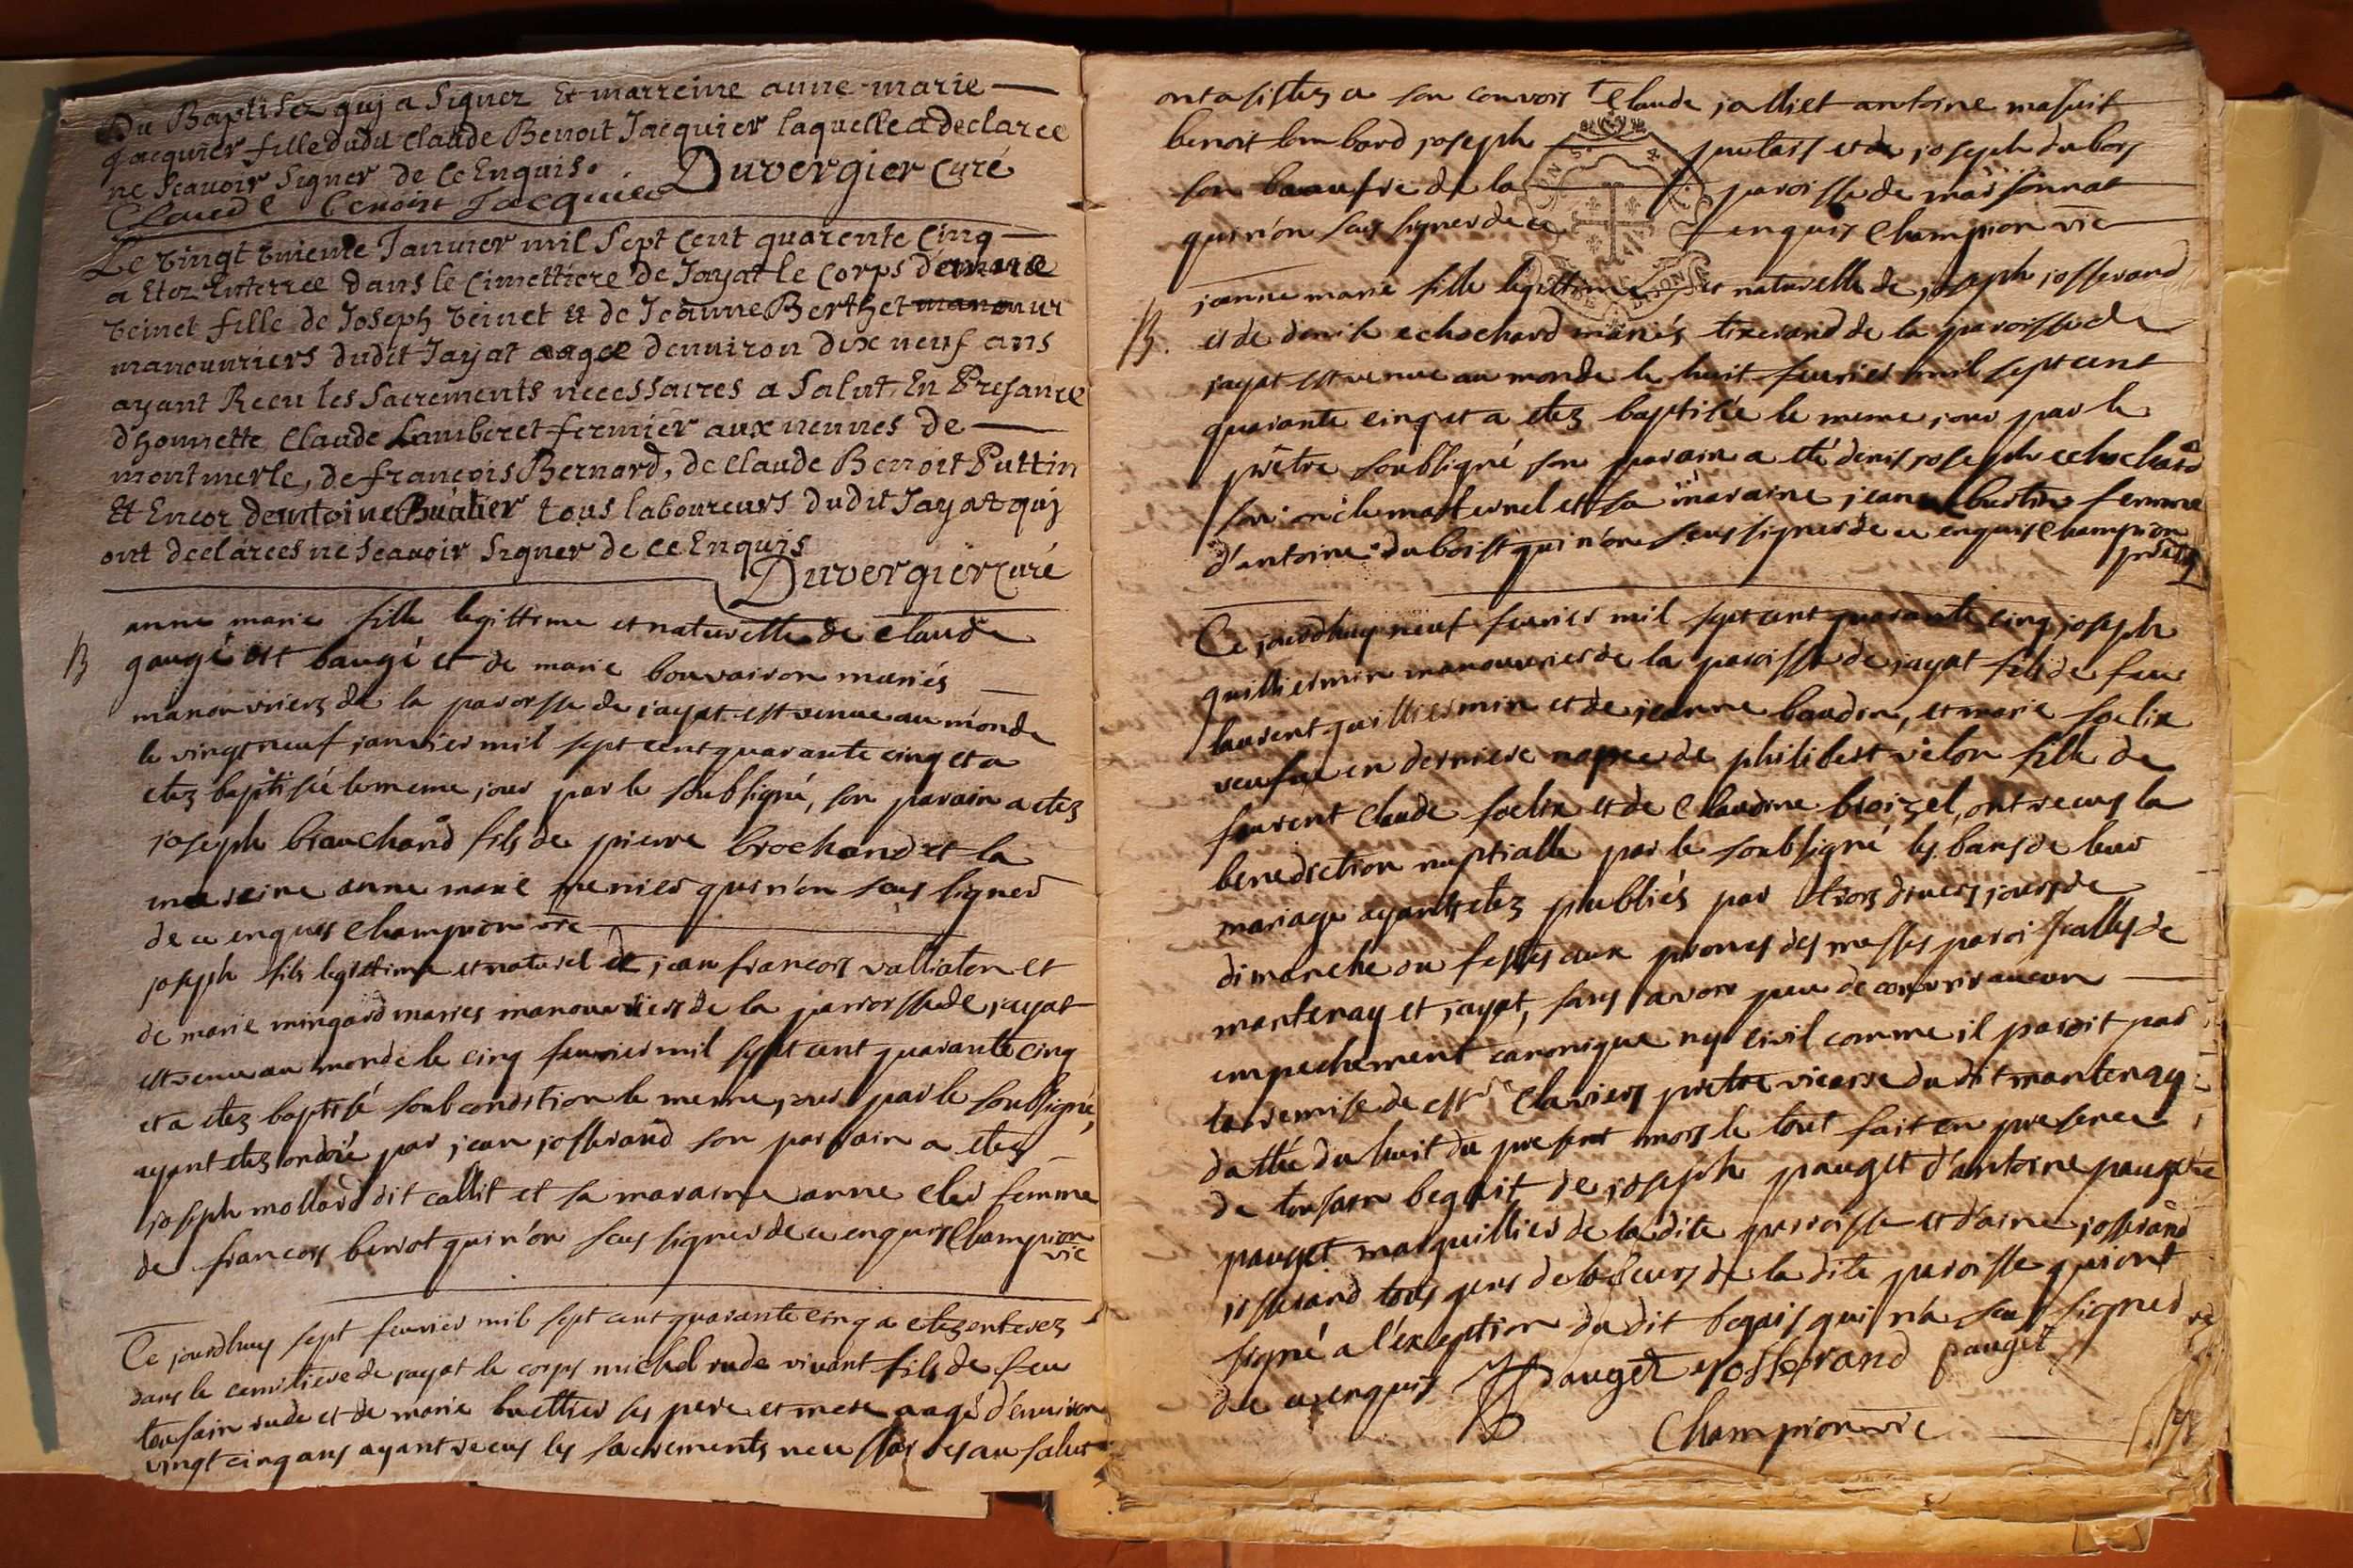 Du Baptisez quj a Signez Et marreine anne-marie
Jacquier fille dudit Claude Benoit Jacquier laquelle a declaree
ne Scavoir Signer de ce Enquise.
Duvergier curé
Claude benoist Jacquier
Le vingt Janvier mil Sept Cent quarente Cinq
a Etez Enterree dans le Cimettiere de Jayat le Corps de marie
veinet fille de Joseph veinet et de Jeanne Berthet
manouvriers dudit Jayat aagee denviron dix neuf ans
ayant Receu les Sacrements necessaires a Salut En Presance
dhonnette Claude Lamberet fermier aux de
montmerle, de françois Bernard, de Claude Benoit Puttin
Et Encor de antoine tous laboureurs dudit Jayat quj
ont declarees ne Scavoir Signer de ce Enquis
Duvergier curé
B
anne marie fille legittime et naturelle de claude
gaugé dit baugé et de marie bouvairon mariés
manouvriers de la paroisse de jayat est venue au monde
le vingt neuf janvier mil sept cent quarante cinq et a
etez baptisée le meme jour par le soubsigné, son parain a etez
joseph brauchand fils de pierre brochand et la
mareine anne marie menier qui n'on seus signer
de ce enquis Champion vic
joseph fils legittime et naturel de jean francois valliaton et
de marie mingard maries manouvriers de la parroisse de jayat
est venu au monde le cinq feuvrier mil sept cent quarante cinq
et a etez baptisé soub condition le meme jour par le soubsigné,
ayant etez ondoié par jean josserand son parrain a etez
joseph mollard dit callit et sa maraine anne cler femme
de francois beniot qui n'on seus signer de ce enquis Champion
vic
Ce jourdhuy sept feuvrier mil sept cent quarante cinq a etez enterez
dans le cemitiere de jayat le corps michel rude vivant fils de feu
tousain rude et de marie buellier ses pere et mere aagé d'environ
vingt cinq ans ayant receus les sacrements necessaires au salut
ont asistez a son convois Claude jalliet antoine masuit
benoit lombard joseph putais et de joseph dubois
son beaufre de la paroisse de marsonnat
qui n'on seus signer de ce enquis Champion vic
B.
jeanne marie fille legittime et naturelle de joseph josserand
et de denise echochard mariés tixerand de la paroisse de
jayat est venue au monde le huit feuvrier mil sept cent
quarante cinq et a etez baptisée le meme jour par le
prêtre soubsigné son parain a été denis joseph echochard
son oncle maternel et sa maraine jeane burtin femme
d'antoine dubois qui n'on seus signer de ce enquis Champion
Ce jourdhuy neuf feuvrier mil sept cent quarante cinq joseph
guilliermin manouvrier de la paroisse de jayat fils de feu
laurent guilliermin et de jeanne baudin, et marie foelix
veufve en derniere nopce de philibert velon fille de
furent claude foelix et de Claudine broizel, ont receus la
benediction nuptialle par le soubsigné les bans de leur
mariage ayants etez publiés par trois divers jours de
dimanche ou festes aux prones des messes paroissialles de
mantenay et jayat, sans avoir peu decouvrir aucun
empechement canonique ny civil comme il paroit par
la remise de Claviers pretre vicaire du dit mantenay
dattée du huit du present mois le tout fait en presence
de tousain begait de joseph pauget d'antoine pauget
pauget marguillier de la dite parroisse et d'aine josserand
josserand tous gens de labeurs de la dite paroisse qui ont
signé a l'exception du dit begais qui n'a seus signer
de ce enquis Pauget yosserand pauget
Champion vic